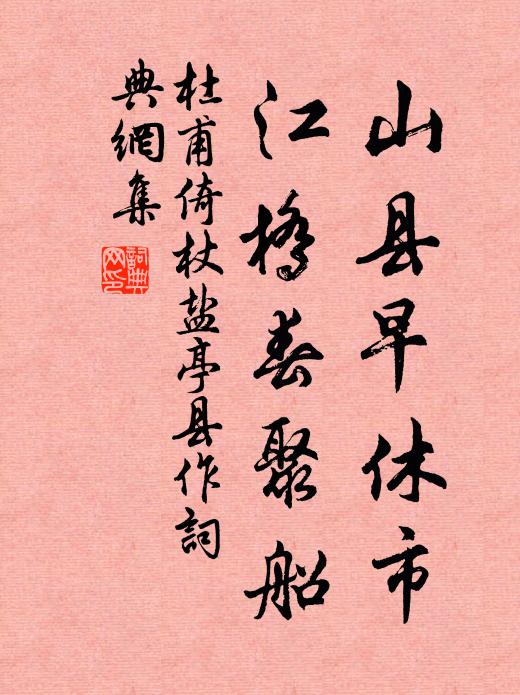 山县早休市
江桥春聚船
杜甫倚杖盐亭县作詞
典網集
詞典
网印